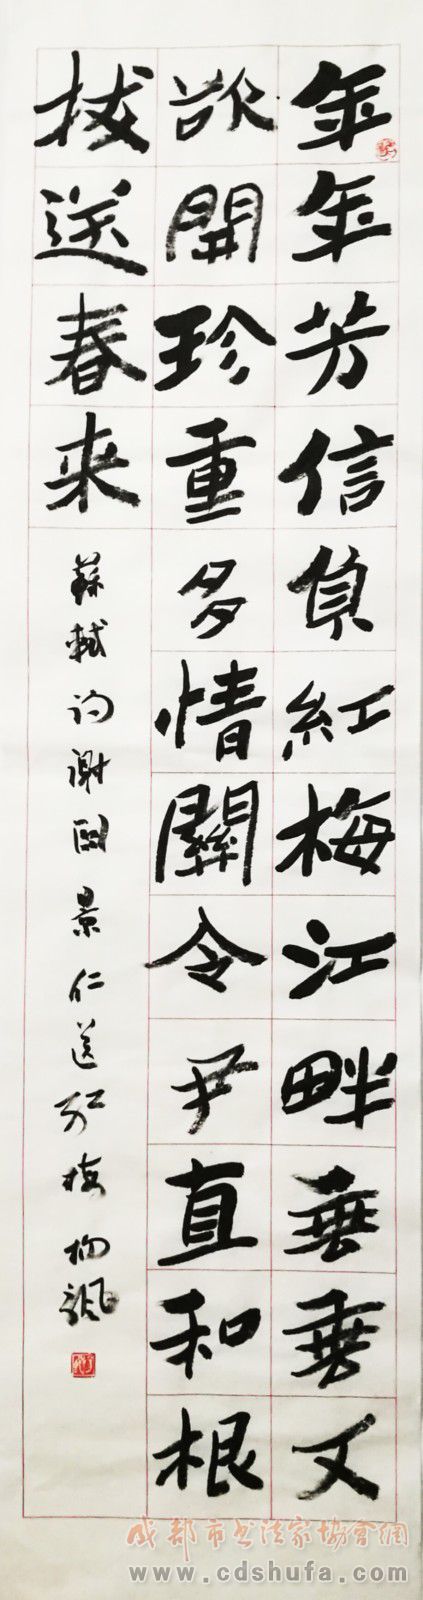 年年芳信負紅梅江畔垂垂又
欲開珍重多情關令尹直和根
拔送春来
蘇軾詩謝關景仁送紅梅 楊
成都市书法家協會網
www.cdshufa.com